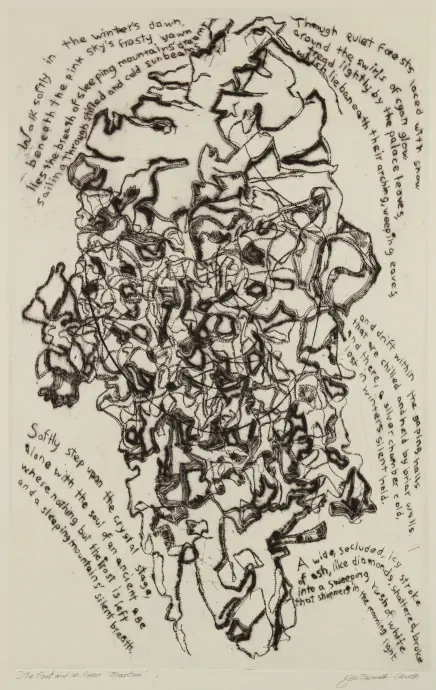 Walk softly in the winter's dawn,
beneath the pink sky's frosty yawn
lies the breath of sleeping mountains' dream
sailing through stifled and cold sunbeam
Through quiet forests laced with snow
around the swirls of cyan glow
tread lightly by the palace leaves
which lie beneath their arching, weeping eaves
and drift within the gaping halls
that are chilled and held by briar walls
and there, a silver chamber cold,
lost in winter's silent hold.
Softly step upon the crystal stage,
alone with the soul of an ancient age
where nothing but the frost is left
and a sleeping mountains' silent breath.
A wide, secluded, icy stroke
of ash, like diamonds, shattered, broke
into a sweeping rush of white
that shimmers in the morning light
The Poet and the Poem "Mountain"